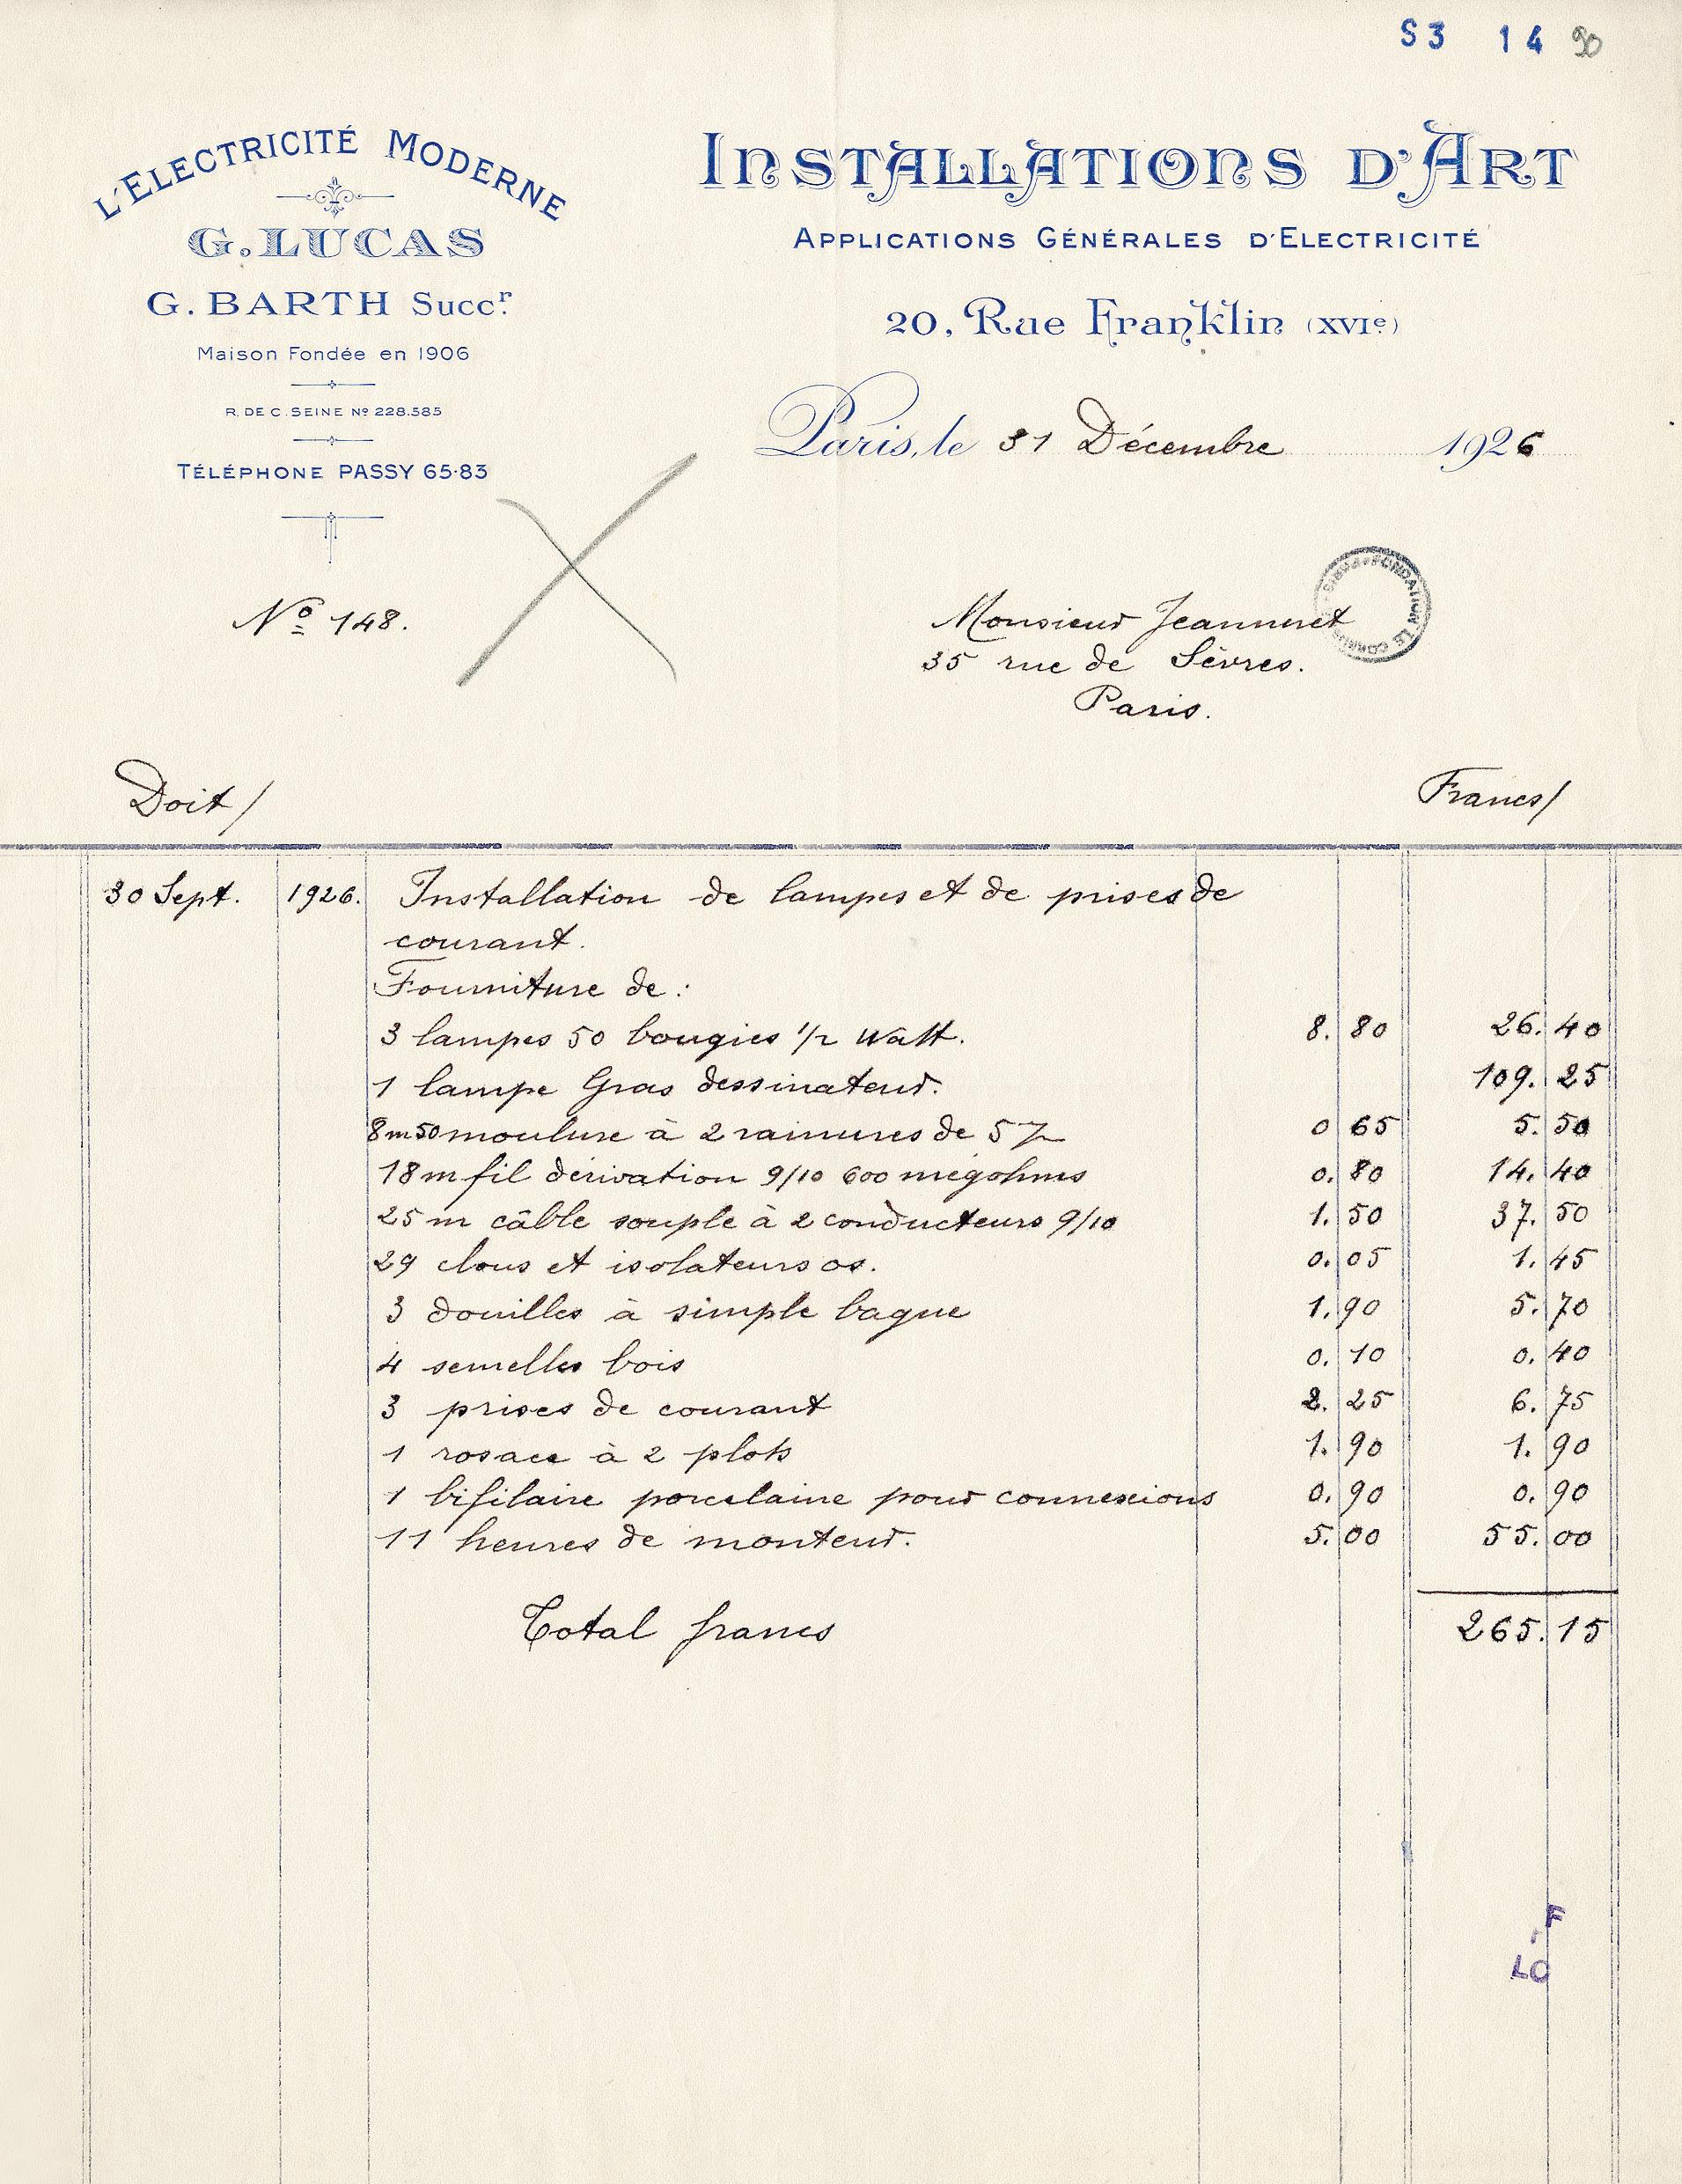 S3 14 90
L'ELECTRICITÉ MODERNE
G. LUCAS
G. BARTH Succr.
Maison Fondée en 1906
R. DE C. SEINE No 228.585
TÉLÉPHONE PASSY 65-83
INSTALLATIONS D'ART
APPLICATIONS GÉNÉRALES D'ELECTRICITÉ
20, Rue Franklin (XVIe)
Paris, le 31 Décembre 1926
No 148.
Monsieur Jeanneret
35 rue de Sèvres.
Paris.
FONDATION LE CORBUSIER
Doit / Francs/
30 Sept. 1926. Installation de lampes et de prises de
courant.
Fourniture de :
3 lampes 50 bougies 1/2 Watt. 8. 80 26. 40
1 lampe Gras dessinateur. 109. 25
8m50 moulure à 2 rainures de 5 0 65 5. 50
18m fil dérivation 9/10 600 mégohms 0. 80 14. 40
25 m câble souple à 2 conducteurs 9/10 1. 50 37. 50
29 clous et isolateurs os. 0. 05 1. 45
3 douilles à simple bague 1. 90 5. 70
4 semelles bois 0. 10 0. 40
3 prises de courant 2. 25 6. 75
1 rosace à 2 plots 1. 90 1. 90
1 bifilaire porcelaine pour connexions 0. 90 0. 90
11 heures de monteur. 5. 00 55. 00
Total francs 265. 15
F
LC